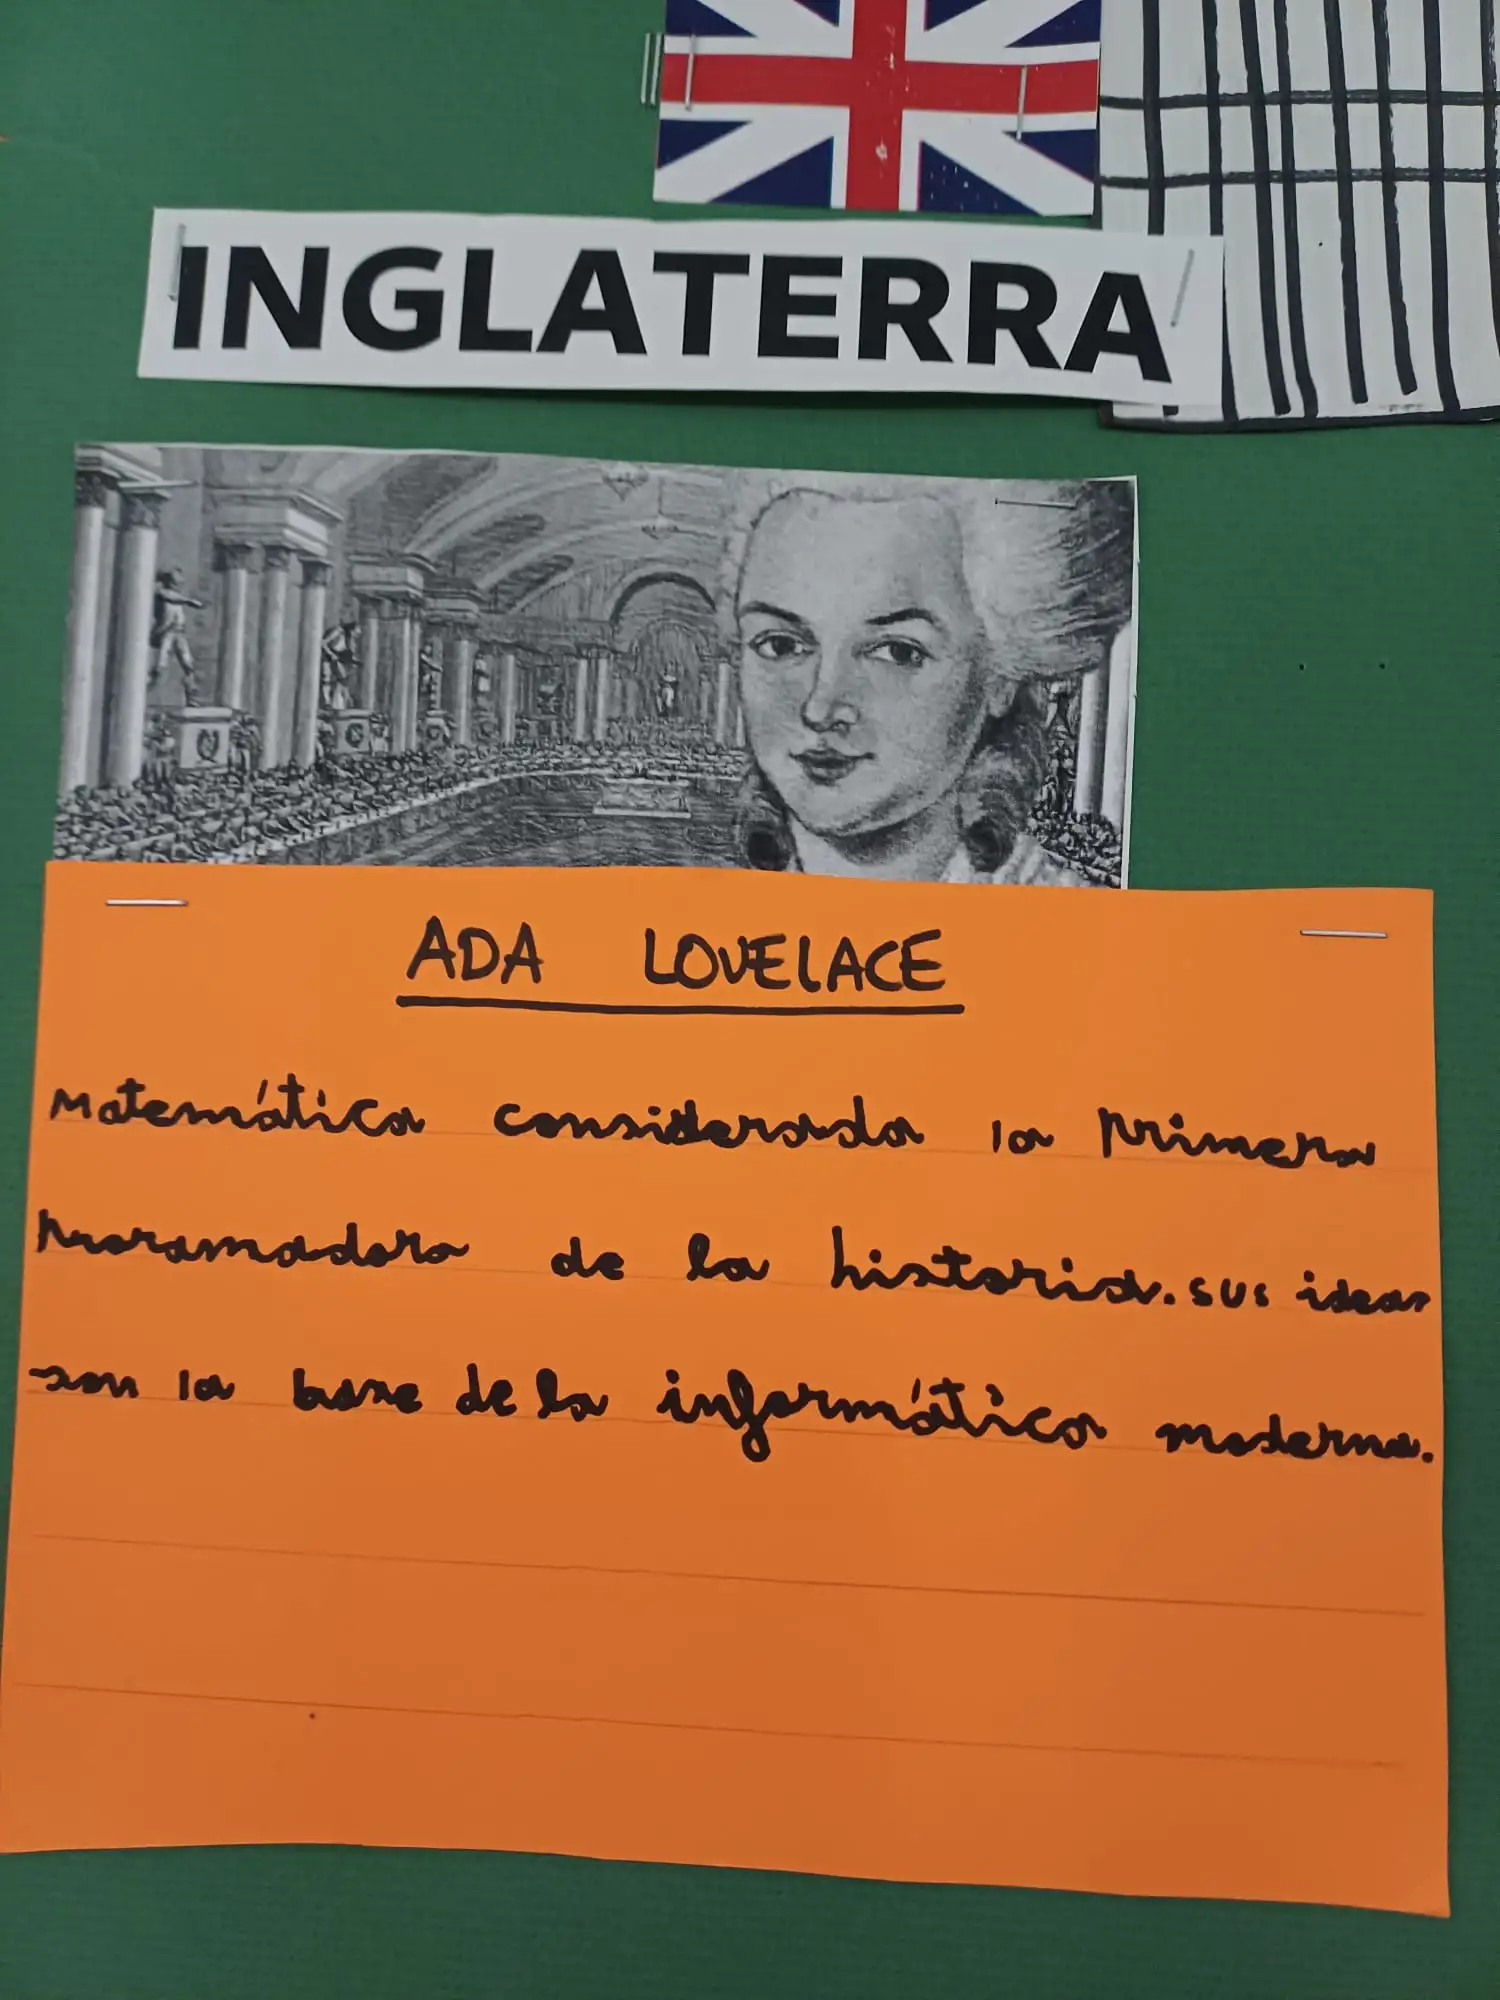 INGLATERRA
ADA LOVELACE
Matemática considerada la primera
proramadora de la historia. sus ideas
son la base de la informática moderna.